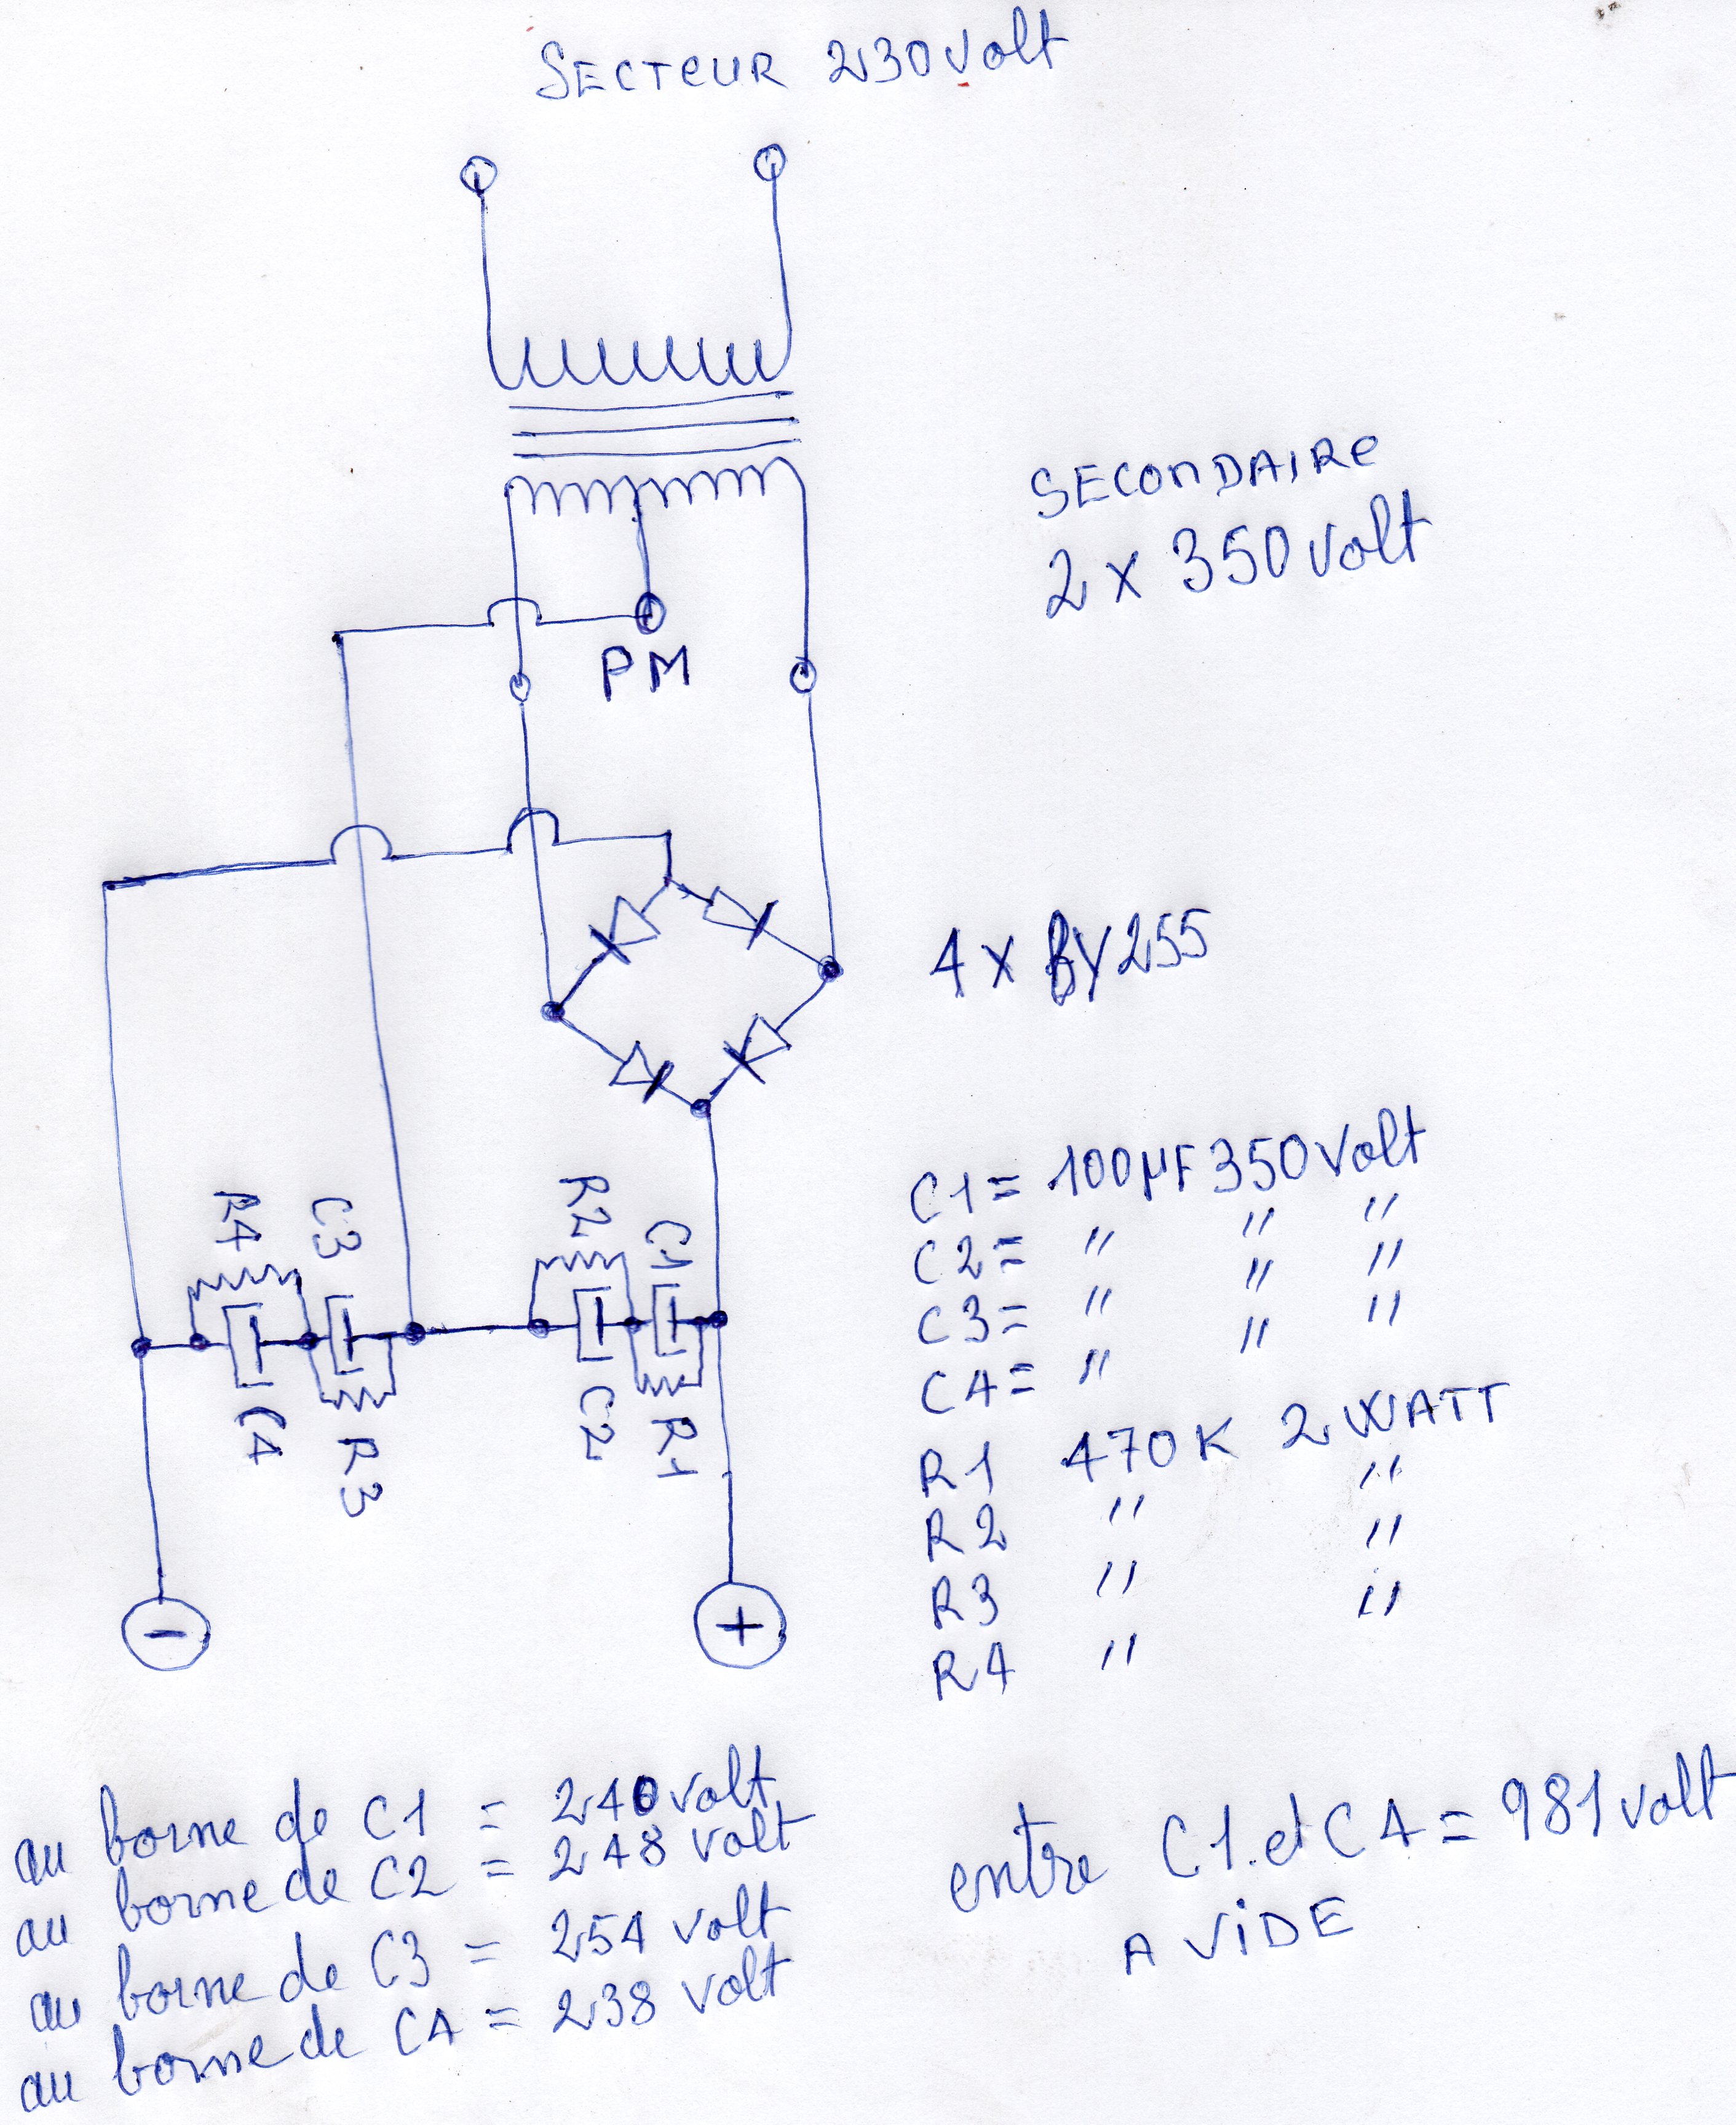 SECTEUR 230 Volt
SECONDAIRE
2 x 350 Volt
PM
4 x BY255
C1 = 100µF 350 Volt
C2 = " " "
C3 = " " "
C4 = " " "
R1 470K 2 WATT
R2 " "
R3 " "
R4 " "
R4
C3
R2
C1
C4
R3
C2
R1
-
+
au borne de C1 = 240 volt
au borne de C2 = 248 volt
au borne de C3 = 254 volt
au borne de C4 = 238 volt
entre C1 et C4 = 981 volt
A VIDE